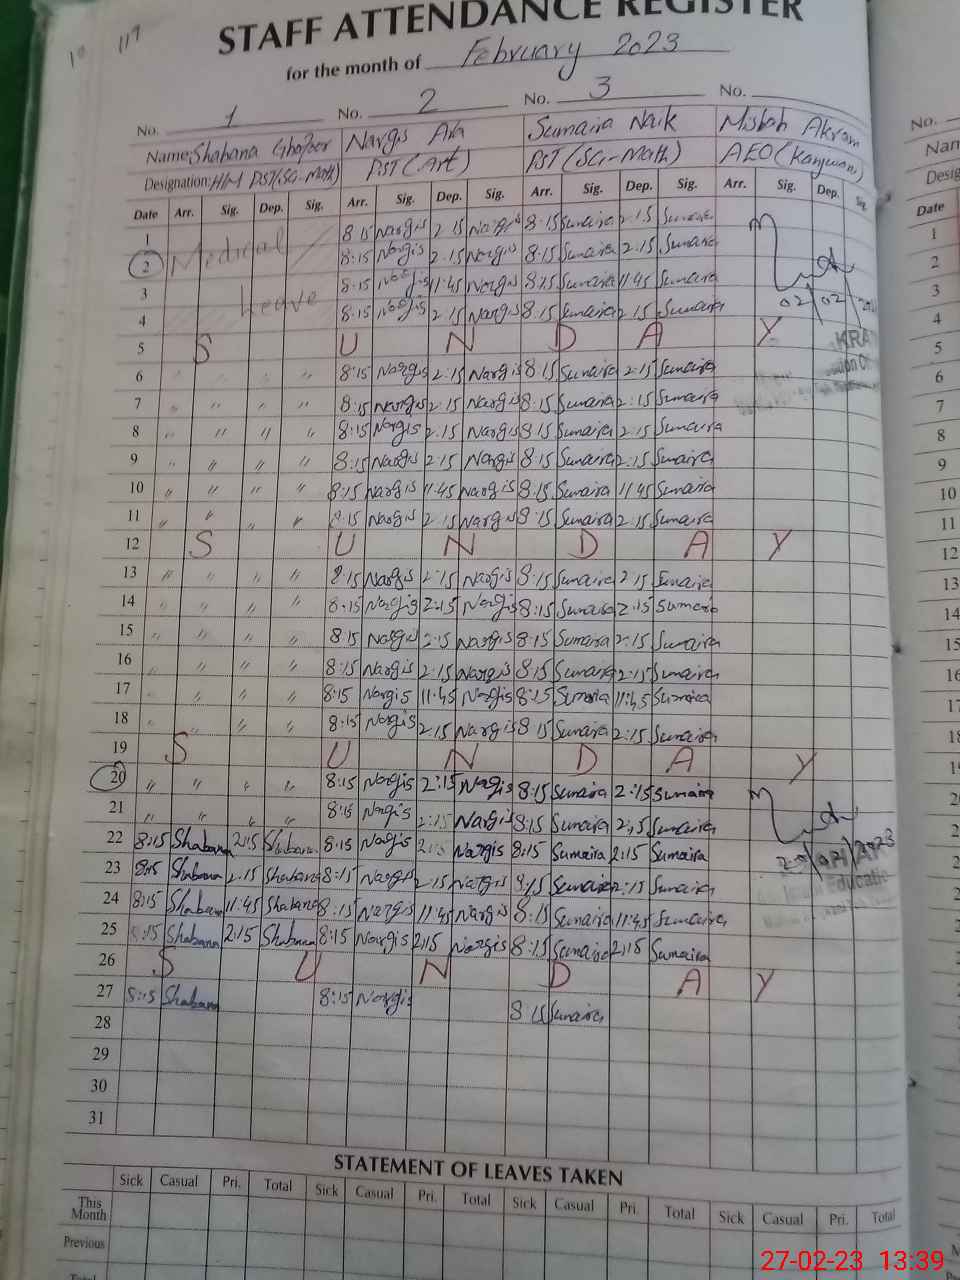 119
STAFF ATTENDANCE REGISTER
for the month of February 2023
No. 1 No. 2 No. 3 No.
Name: Shabana Ghafoor Nargis Ara Sumaira Naik Misbah Akram
Designation: H/M PST(Sci-Math) PST (Art) PST (Sci-Math) AEO (Kanjwani)
Date Arr. Sig. Dep. Sig. Arr. Sig. Dep. Sig. Arr. Sig. Dep. Sig. Arr. Sig. Dep. Sig.
1 8:15 Nargis 2:15 Nargis 8:15 Sumaira 2:15 Sumaira
2 Medical 8:15 Nargis 2:15 Nargis 8:15 Sumaira 2:15 Sumaira
3 Leave 8:15 Nargis 11:45 Nargis 8:15 Sumaira 11:45 Sumaira 02/02/
4 8:15 Nargis 2:15 Nargis 8:15 Sumaira 2:15 Sumaira
5 S U N D A Y
6 " " " 8:15 Nargis 2:15 Nargis 8:15 Sumaira 2:15 Sumaira
7 " " " " 8:15 Nargis 2:15 Nargis 8:15 Sumaira 2:15 Sumaira
8 " " " " 8:15 Nargis 2:15 Nargis 8:15 Sumaira 2:15 Sumaira
9 " " " " 8:15 Nargis 2:15 Nargis 8:15 Sumaira 2:15 Sumaira
10 " " " " 8:15 Nargis 11:45 Nargis 8:15 Sumaira 11:45 Sumaira
11 " " " " 8:15 Nargis 2:15 Nargis 8:15 Sumaira 2:15 Sumaira
12 S U N D A Y
13 " " " " 8:15 Nargis 2:15 Nargis 8:15 Sumaira 2:15 Sumaira
14 " " " " 8:15 Nargis 2:15 Nargis 8:15 Sumaira 2:15 Sumaira
15 " " " " 8:15 Nargis 2:15 Nargis 8:15 Sumaira 2:15 Sumaira
16 " " " " 8:15 Nargis 2:15 Nargis 8:15 Sumaira 2:15 Sumaira
17 " " " " 8:15 Nargis 11:45 Nargis 8:15 Sumaira 11:45 Sumaira
18 " " " " 8:15 Nargis 2:15 Nargis 8:15 Sumaira 2:15 Sumaira
19 S U N D A Y
20 " " " " 8:15 Nargis 2:15 Nargis 8:15 Sumaira 2:15 Sumaira
21 " " " " 8:15 Nargis 2:15 Nargis 8:15 Sumaira 2:15 Sumaira
22 8:15 Shabana 2:15 Shabana 8:15 Nargis 2:15 Nargis 8:15 Sumaira 2:15 Sumaira
23 8:15 Shabana 2:15 Shabana 8:15 Nargis 2:15 Nargis 8:15 Sumaira 2:15 Sumaira
24 8:15 Shabana 11:45 Shabana 8:15 Nargis 11:45 Nargis 8:15 Sumaira 11:45 Sumaira
25 8:15 Shabana 2:15 Shabana 8:15 Nargis 2:15 Nargis 8:15 Sumaira 2:15 Sumaira
26 S U N D A Y
27 8:15 Shabana 8:15 Nargis 8:15 Sumaira
28
29
30
31
STATEMENT OF LEAVES TAKEN
Sick Casual Pri. Total Sick Casual Pri. Total Sick Casual Pri. Total Sick Casual Pri. Total
This Month
Previous
Total
No.
Nam
Desig
Date
1
2
3
4
5
6
7
8
9
10
11
12
13
14
15
16
17
18
27-02-23 13:39